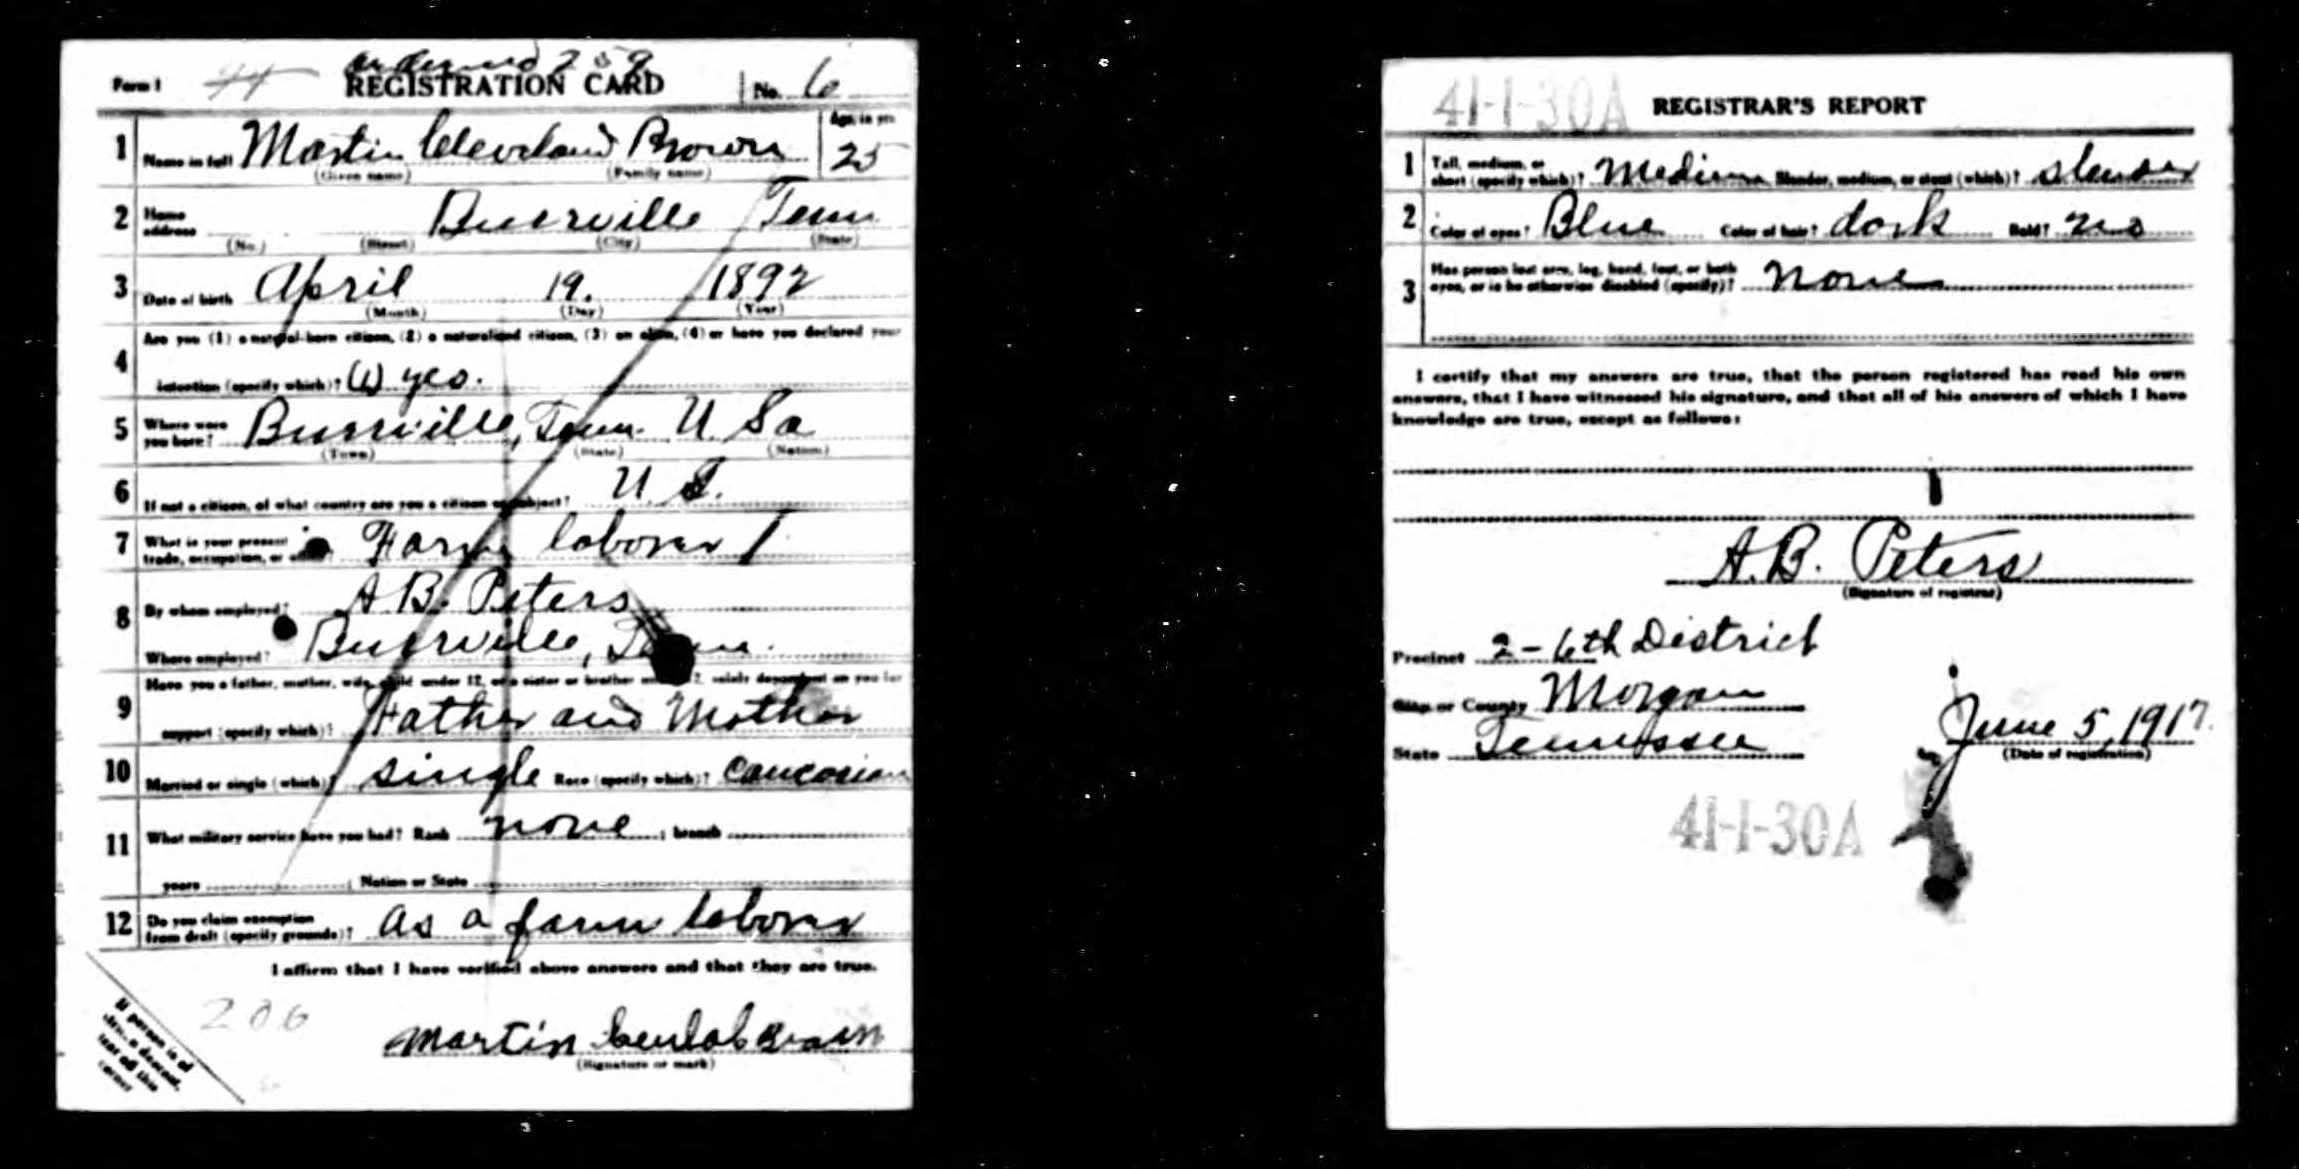 258
Form 1 44 REGISTRATION CARD No. 6
1 Name in full Martin Cleveland Brown Age, in yrs 25
(Given name) (Family name)
2 Home address Burrville Tenn
(No.) (Street) (City) (State)
3 Date of birth April 19. 1892
(Month) (Day) (Year)
Are you (1) a natural-born citizen, (2) a naturalized citizen, (3) an alien, (4) or have you declared your
4 intention (specify which)? (1) yes.
5 Where were you born? Burrville, Tenn. U. Sa
(Town) (State) (Nation)
6 If not a citizen, of what country are you a citizen or subject? U. S.
7 What is your present trade, occupation, or office? Farm laborer
8 By whom employed? A B. Peters
Where employed? Burrville, Tenn.
Have you a father, mother, wife, child under 12, or a sister or brother under 12, solely dependent on you for
9 support (specify which)? Father and Mother
10 Married or single (which)? single Race (specify which)? Caucasian
11 What military service have you had? Rank none ; branch
years ; Nation or State
12 Do you claim exemption from draft (specify grounds)? as a farm laborer
I affirm that I have verified above answers and that they are true.
206
Martin
(Signature or mark)
If person is of
African descent,
tear off this
corner
41-1-30A REGISTRAR'S REPORT
1 Tall, medium, or short (specify which)? Medium Slender, medium, or stout (which)? slender
2 Color of eyes? Blue Color of hair? dark Bald? no
3 Has person lost arm, leg, hand, foot, or both eyes, or is he otherwise disabled (specify)? none
I certify that my answers are true, that the person registered has read his own
answers, that I have witnessed his signature, and that all of his answers of which I have
knowledge are true, except as follows:
A. B. Peters
(Signature of registrar)
Precinct 2 - 6th District
City or County Morgan
State Tennessee June 5, 1917.
(Date of registration)
41-1-30A